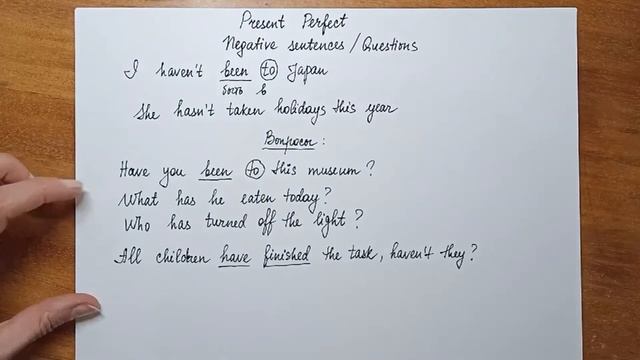 Present Perfect
Negative sentences / Questions
I haven't been to Japan
быть в
She hasn't taken holidays this year
Вопросы:
Have you been to this museum?
What has he eaten today?
Who has turned off the light?
All children have finished the task, haven't they?